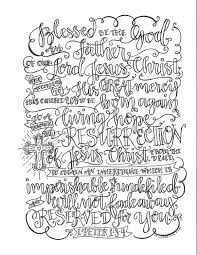 Blessed be the God
and Father
of our Lord Jesus Christ
his great mercy
has caused us to be born again
living hope
RESURRECTION
of Jesus Christ from the dead
to obtain an inheritance which is
imperishable & undefiled
will not fade away
RESERVED for you
1 PETER 1:3-4